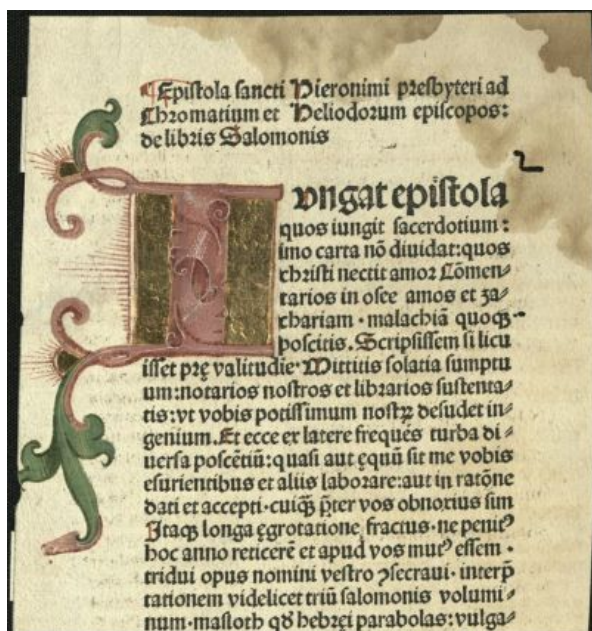 Epistola sancti Hieronimi presbyteri ad
Chromatium et Heliodorum episcopos:
de libris Salomonis
2
Iungat epistola
quos iungit sacerdotium:
imo carta nō diuidat: quos
christi nectit amor Cōmen⸗
tarios in osee amos et za⸗
chariam · malachiā quoqꝫ
poscitis. Scripsissem si licu
isset prę valitudie · Mittitis solatia sumptu
um: notarios nostros et librarios sustenta⸗
tis: vt vobis potissimum nostꝝ desudet in⸗
genium. Et ecce ex latere frequēs turba di⸗
uersa poscētiū: quasi aut ęquū sit me vobis
esurientibus et aliis laborare: aut in ratōne
dati et accepti · cuiqꝫ p̄ter vos obnoxius sim
Itaqꝫ longa ęgrotatione fractus · ne penitꝰ
hoc anno reticerē et apud vos mutꝰ essem ·
tridui opus nomini vestro ↄsecraui · interp̄
tationem videlicet triū salomonis volumi⸗
num · masloth qd̄ hebręi parabolas: vulga⸗